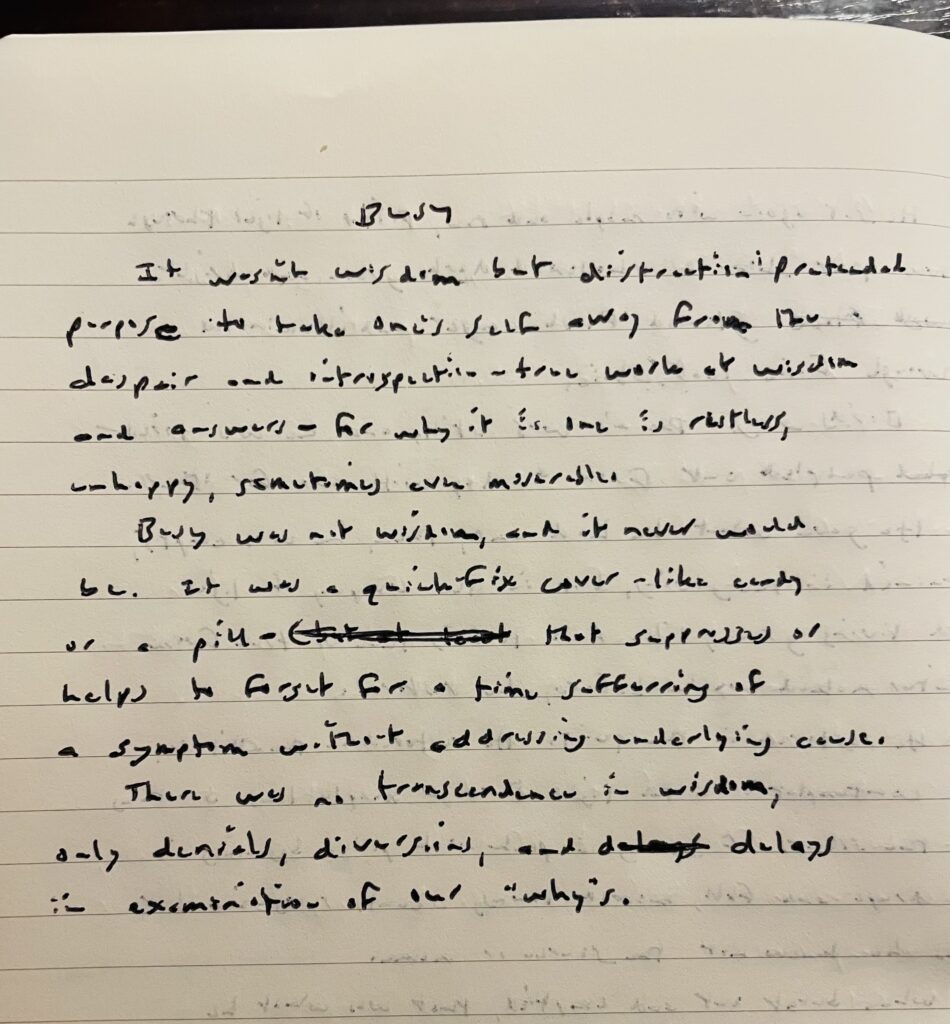 Busy
It wasn't wisdom but distraction; pretended
purpose to take one's self away from the
despair and introspection - true work of wisdom
and answers - for why it is one is restless,
unhappy, sometimes even miserable.
Busy was not wisdom, and it never would
be. It was a quick-fix cover - like candy
or a pill - that suppresses or
helps to forget for a time sufferring of
a symptom without addressing underlying cause.
There was no transcendence in wisdom,
only denials, diversions, and delays
in examination of our "why"s.